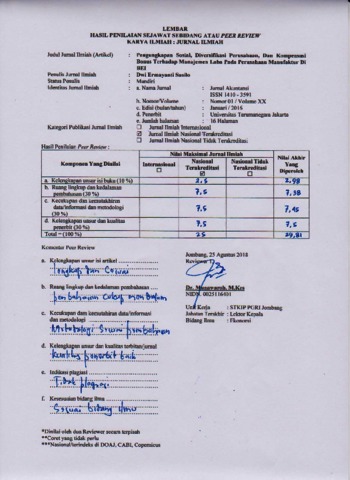 LEMBAR
HASIL PENILAIAN SEJAWAT SEBIDANG ATAU PEER REVIEW
KARYA ILMIAH : JURNAL ILMIAH
Judul Jurnal Ilmiah (Artikel) : Pengungkapan Sosial, Diversifikasi Perusahaan, Dan Kompensasi
Bonus Terhadap Manajemen Laba Pada Perusahaan Manufaktur Di
BEI
Penulis Jurnal Ilmiah : Dwi Ermayanti Susilo
Status Penulis : Mandiri
Identitas Jurnal Ilmiah : a. Nama Jurnal : Jurnal Akuntansi
ISSN 1410 - 3591
b. Nomor/Volume : Nomor 01 / Volume XX
c. Edisi (bulan/tahun) : Januari / 2016
d. Penerbit : Universitas Tarumanagara Jakarta
e. Jumlah halaman : 16 Halaman
Kategori Publikasi Jurnal Ilmiah : ☐ Jurnal Ilmiah Internasional
☑ Jurnal Ilmiah Nasional Terakreditasi
☐ Jurnal Ilmiah Nasional Tidak Terakreditasi
Hasil Penilaian Peer Review :
Komponen Yang Dinilai
Nilai Maksimal Jurnal Ilmiah
Internasional ☐
Nasional Terakreditasi ☑
Nasional Tidak Terakreditasi ☐
Nilai Akhir Yang Diperoleh
a. Kelengkapan unsur isi buku (10 %) 2,5
b. Ruang lingkup dan kedalaman pembahasan (30 %) 7,5 7,38
c. Kecukupan dan kemutakhiran data/informasi dan metodologi (30 %) 7,5 7,45
d. Kelengkapan unsur dan kualitas penerbit (30 %) 7,5 7,5
Total = (100 %) 25
Komentar Peer Review
Jombang, 25 Agustus 2018
Reviewer
a. Kelengkapan unsur isi artikel
Lengkap dan Sesuai
b. Ruang lingkup dan kedalaman pembahasan
pembahasan cukup
c. Kecukupan dan kemutakhiran data/informasi
dan metodologi
Metodologi Sesuai pembahasan
d. Kelengkapan unsur dan kualitas terbitan/jurnal
penerbit baik
e. Indikasi plagiasi
Tidak plagiasi
f. Kesesuaian bidang ilmu
Sesuai bidang ilmu
Dr. Munawaroh, M.Kes
NIDN. 0025116401
Unit Kerja : STKIP PGRI Jombang
Jabatan Terakhir : Lektor Kepala
Bidang Ilmu : Ekonomi
*Dinilai oleh dua Reviewer secara terpisah
**Coret yang tidak perlu
***Nasional/terindeks di DOAJ, CABI, Copernicus